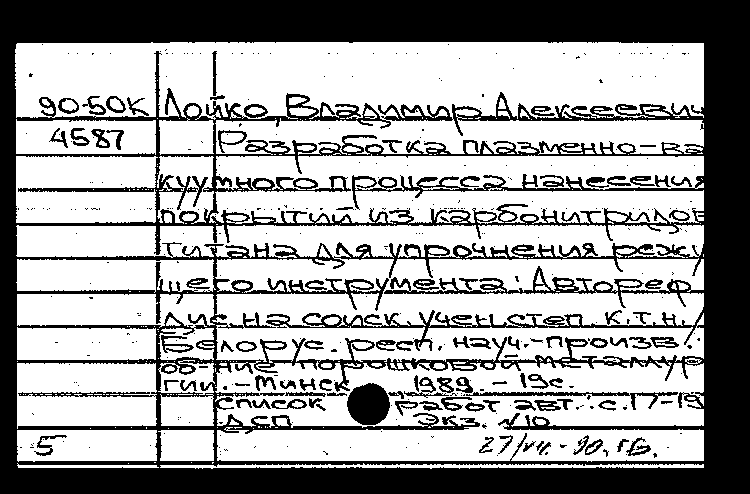 90-50К Лойко, Владимир Алексеевич
4587 Разработка плазменно-ва
куумного процесса нанесения
покрытий из карбонитридов
титана для упрочнения режу
щего инструмента: Автореф.
дис. на соиск. учен. степ. к.т.н./
Белорус. респ. науч.-произв.
об-ние порошковой металлур
гии. - Минск, 1989. - 19с.
Список работ авт.: с.17-19
ДСП Экз. №10
5 27/VII.-90. гб.